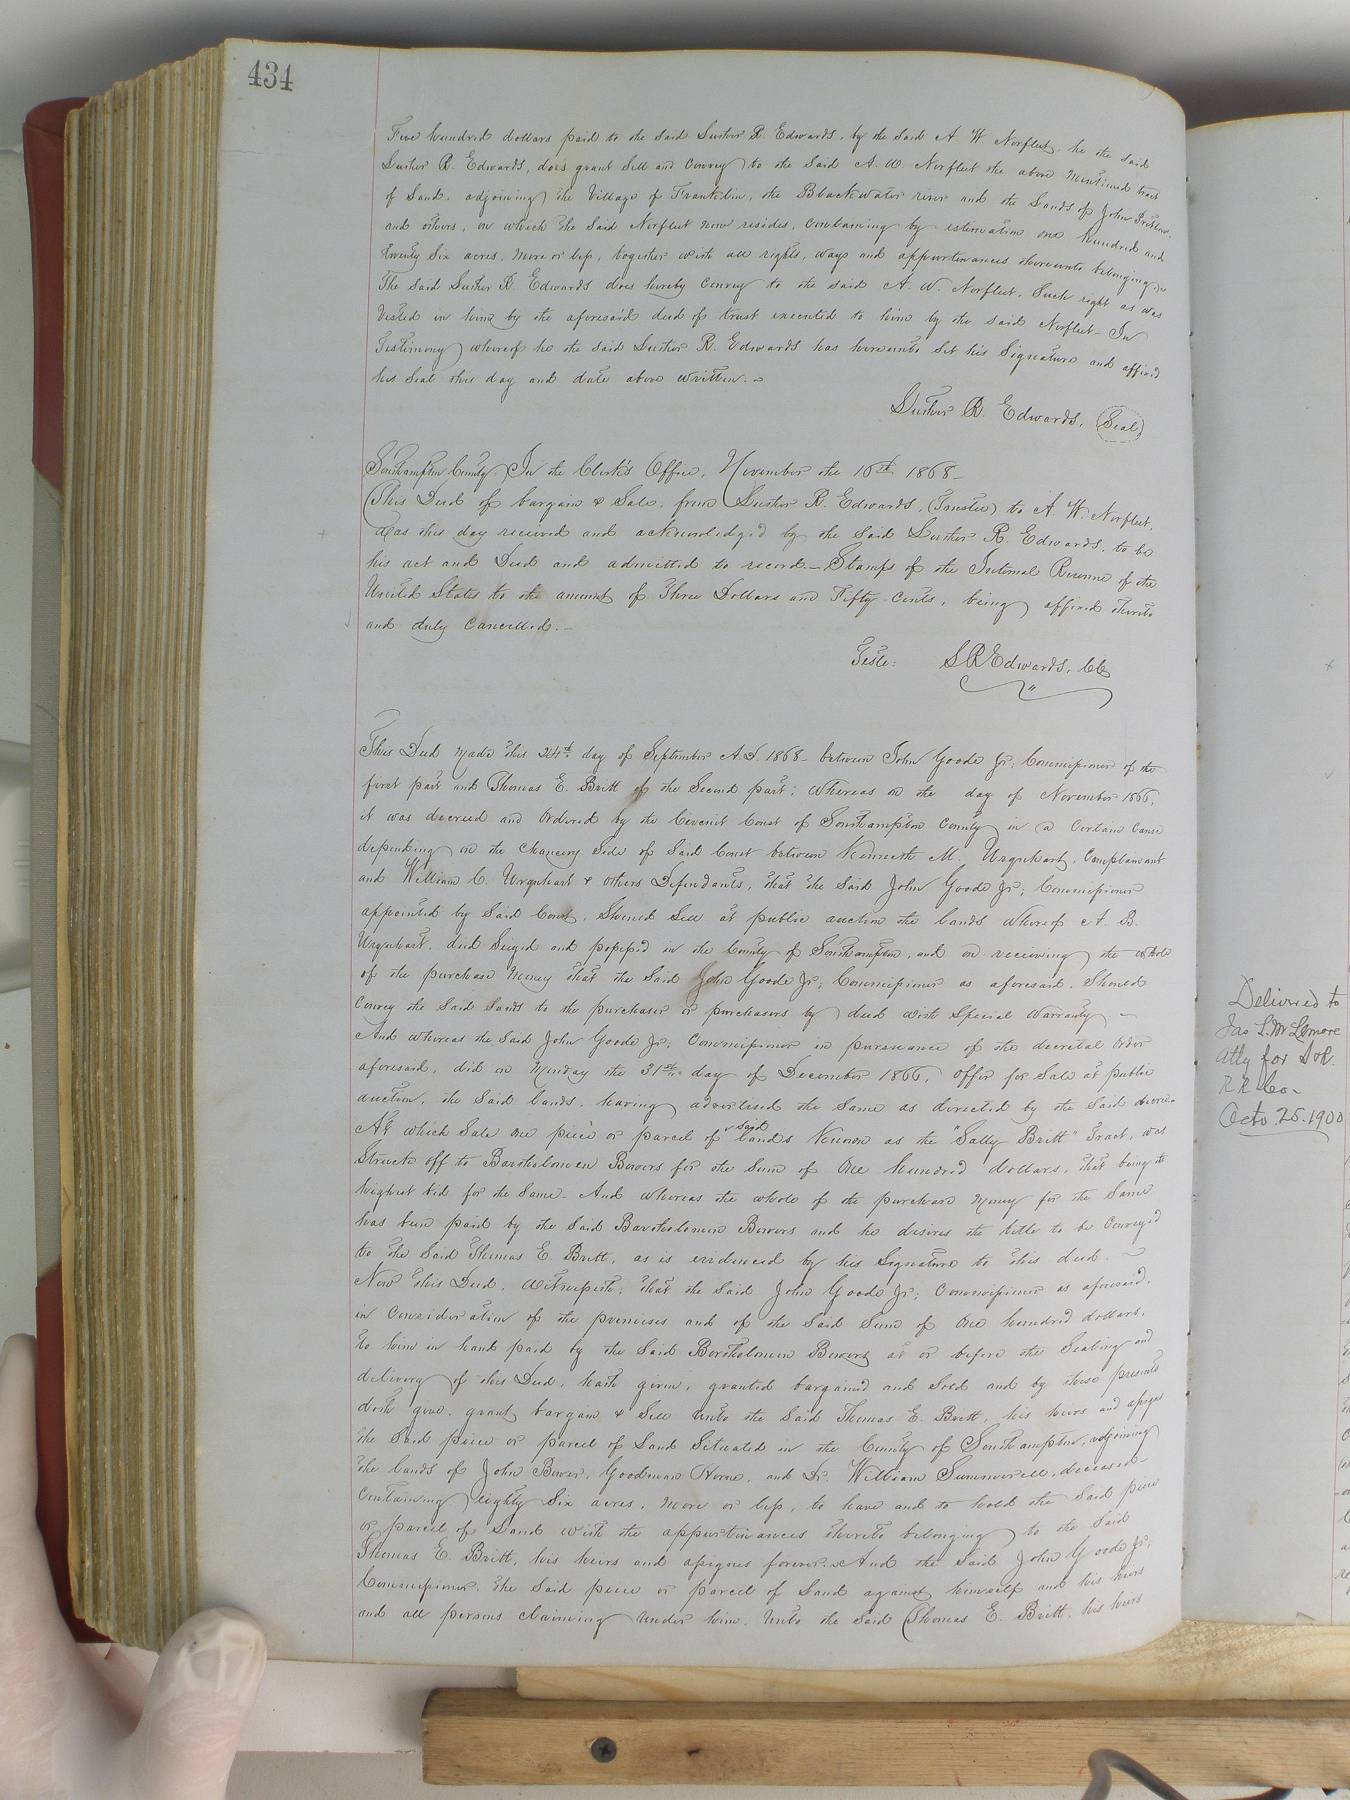 434
Five hundred dollars paid to the said Luther R. Edwards, by the said A. W. Norfleet, he the said
Luther R. Edwards, does grant Sell and Convey to the said A. W. Norfleet the above mentioned tract
of Land, adjoining the Village of Franklin, the Blackwater river and the Lands of John
and others, on which the Said Norfleet now resides, containing by estimation one hundred and
twenty Six acres, more or less, together with all rights, ways and appurtenances thereunto belonging
The said Luther R. Edwards does hereby Convey to the said A. W. Norfleet, Such right as was
Vested in him by the aforesaid deed of trust executed to him by the said Norfleet - In
Testimony whereof he the said Luther R. Edwards has hereunto Set his Signature and affixed
his Seal this day and date above written. -
Luther R. Edwards, (Seal)
Southampton County, In the Clerk's Office, November the 16th 1868 -
This Deed of bargain & Sale, from Luther R. Edwards, (Trustee) to A. W. Norfleet,
Was this day received and acknowledged by the Said Luther R. Edwards, to be
his act and Deed and admitted to record. - Stamps of the Internal Revenue of the
United States to the amount of Three Dollars and Fifty Cents, being affixed thereto
and duly Cancelled. -
Teste: L R Edwards, Clk
This Deed made this 24th day of September A.D. 1868 - between John Goode Jr; Commissioner of the
first part and Thomas E. Britt of the Second part: Whereas on the day of November 1866,
it was decreed and Ordered by the Circuit Court of Southampton County in a Certain Cause
depending on the Chancery Side of Said Court between Kenneth M. Urquhart, Complainant
and William C. Urquhart & others Defendants, that the Said John Goode Jr; Commissioner
appointed by Said Court, Should Sell at public auction the lands whereof A. B.
Urquhart, died Seized and possessed in the County of Southampton, and on receiving the whole
of the purchase Money that the Said John Goode Jr; Commissioner as aforesaid, Should
Convey the Said Lands to the purchaser or purchasers by deed with Special Warranty -
And whereas the Said John Goode Jr; Commissioner in pursuance of the decretal Order
aforesaid, did on Monday the 31st day of December 1866, offer for Sale at public
auction, the Said lands, having advertised the Same as directed by the Said decree -
At which Sale one piece or parcel of said lands Known as the "Sally Britt" Tract, was
Struck off to Bartholomew Bowers for the Sum of One hundred dollars, that being the
highest bid for the Same - And whereas the whole of the purchase Money for the Same
has been paid by the Said Bartholomew Bowers and he desires the title to be Conveyed
to the Said Thomas E. Britt, as is evidenced by his Signature to this deed. -
Now this Deed, Witnesseth; that the Said John Goode Jr; Commissioner as aforesaid,
in Consideration of the premises and of the Said Sum of One hundred dollars,
to him in hand paid by the Said Bartholomew Bowers at or before the Sealing and
delivery of this Deed, hath given, granted bargained and Sold and by these presents
doth give, grant, bargain & Sell unto the Said Thomas E. Britt, his heirs and assigns
the Said piece or parcel of Land Situated in the County of Southampton, adjoining
the lands of John Bower, Goodman Horne, and Dr. William Summerell, deceased -
Containing eighty Six acres, more or less, to have and to hold the Said piece
or parcel of Land with the appurtenances thereto belonging to the Said
Thomas E. Britt, his heirs and assigns forever. And the Said John Goode Jr;
Commissioner, the Said piece or parcel of Land against himself and his heirs
and all persons claiming under him, unto the Said Thomas E. Britt, his heirs
Delivered to
Jas L. McLemore
Atty for
R R Co -
Octo. 25. 1900